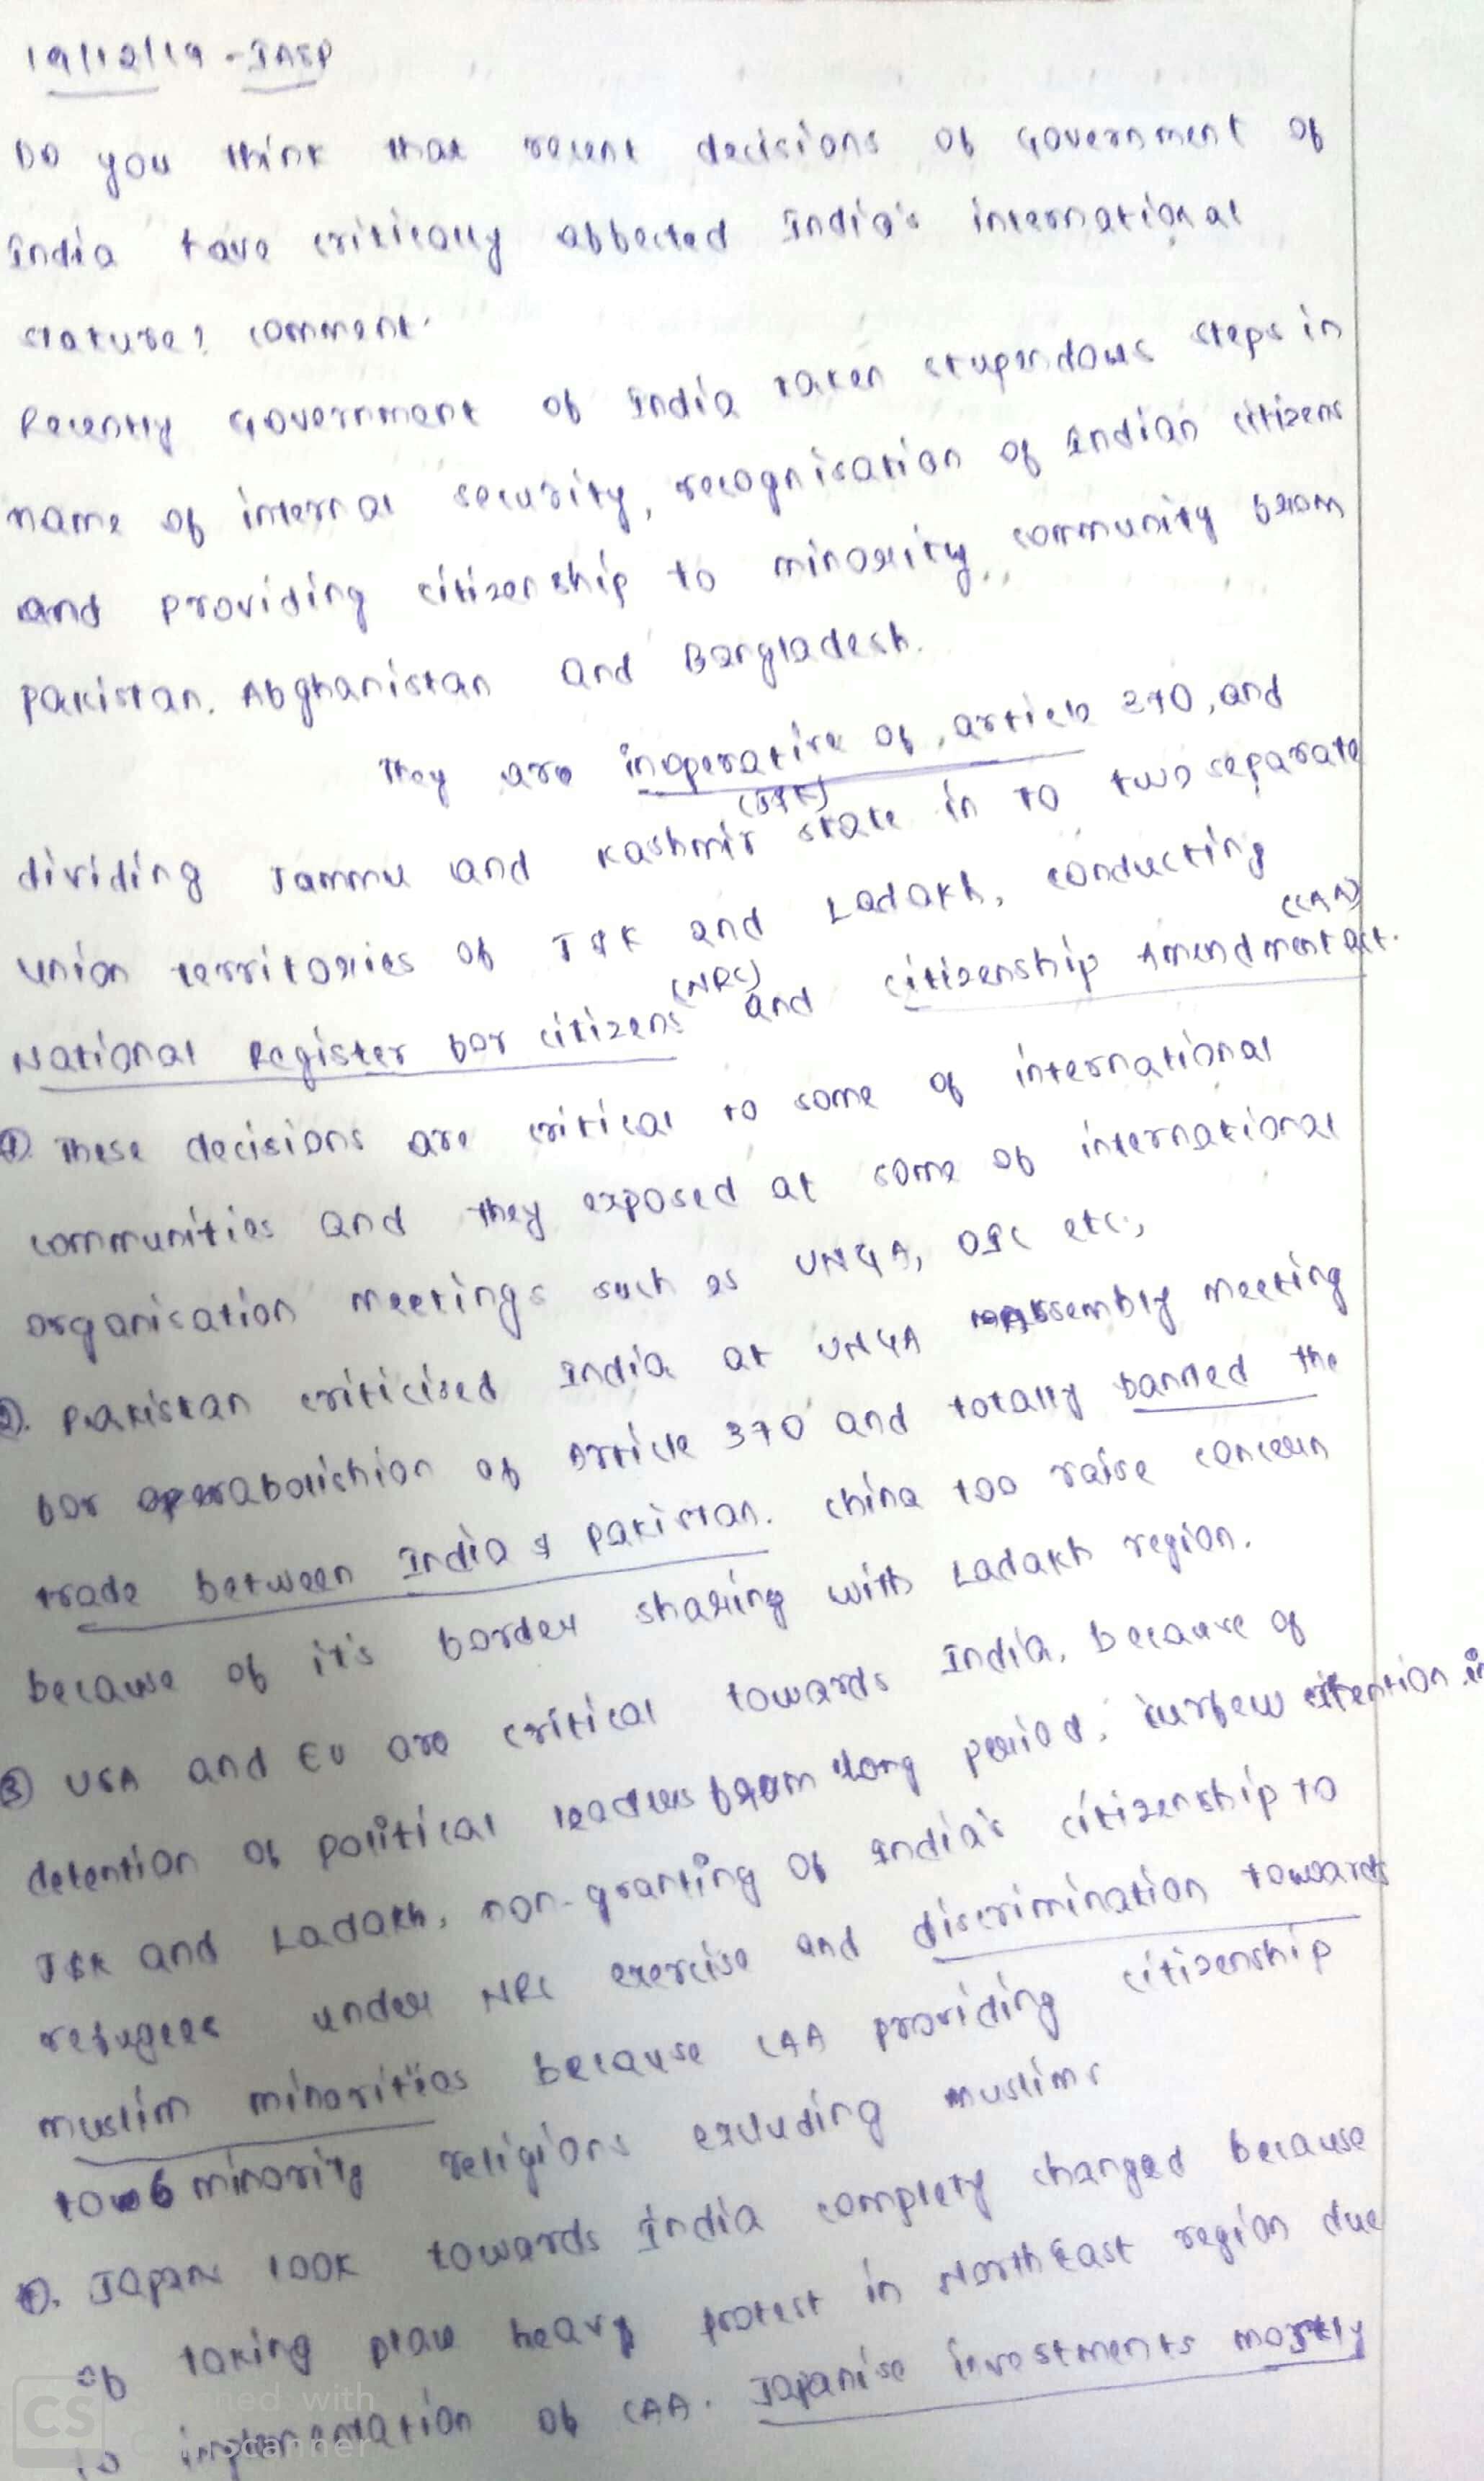 19/12/19 - INSP
Do you think that recent decisions of Government of
India have critically affected India's international
stature? comment.
Recently Government of India taken stupendous steps in
name of internal security, recognisation of Indian citizens
and providing citizenship to minority community from
Pakistan, Afghanistan and Bangladesh.
They are inoperative of article 370, and
dividing Jammu and Kashmir (J&K) state in to two separate
union territories of J&K and Ladakh, conducting
National Register for citizens (NRC) and citizenship Amendment act. (CAA)
① These decisions are critical to some of international
communities and they exposed at some of international
organisation meetings such as UNGA, OIC etc.,
②. Pakistan criticised India at UNGA Assembly meeting
for abolishion of Article 370 and totally banned the
trade between India & Pakistan. China too raise concern
because of it's border sharing with Ladakh region.
③ USA and EU are critical towards India, because of
detention of political leaders from long period, curfew in
J&K and Ladakh, non-granting of India's citizenship to
refugees under NRC exercise and discrimination towards
muslim minorities because CAA providing citizenship
to 6 minority religions excluding muslims
④. Japan look towards India complety changed because
of taking place heavy protest in North East region due
to implementation of CAA. Japanise investments mostly
CS Scanned with
CamScanner